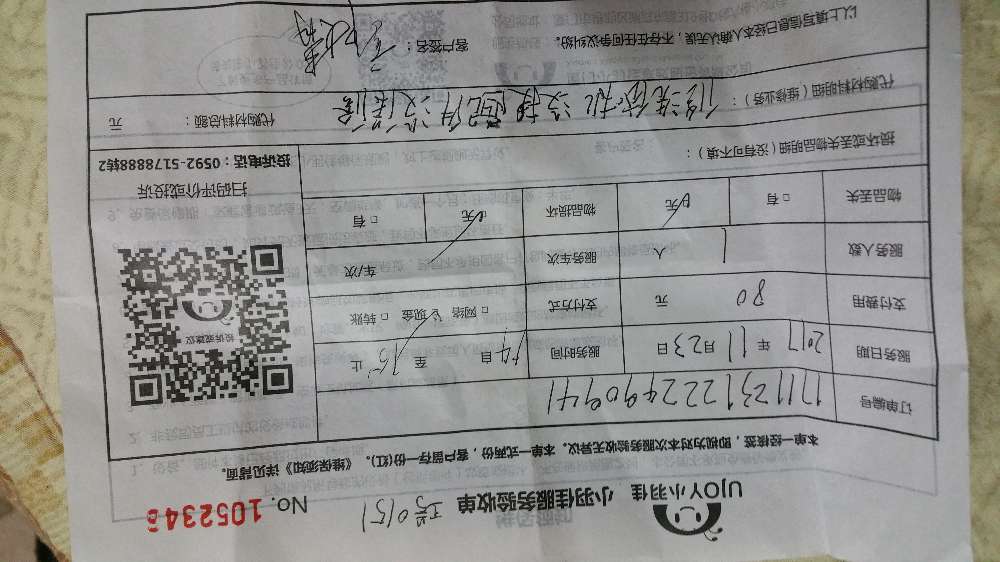 UJOY小羽佳 小羽佳服务验收单 No. 1052348
本单一经核签，即视为对本次服务验收无异议。本单一式两份，客户留存一份(红)。《维保须知》详见背面。
订单编号 171123122249090941
服务日期 2017 年 11 月 23 日 服务时间 14 自 至 15 止
支付费用 80 元 支付方式 □ 网络 □ 现金 □ 转账
服务人数 1 人 服务车次 车/次
物品丢失 □ 有 □ 无 物品损坏 □ 无 □ 有
损坏或丢失物品明细（没有可不填）：
投诉或建议
扫码评价或投诉
投诉电话：0592-5178888转2
代购材料明细（维修业务）： 代购材料总额： 元
以上填写信息已经本人确认无误，不存在任何争议纠纷。 客户签名：